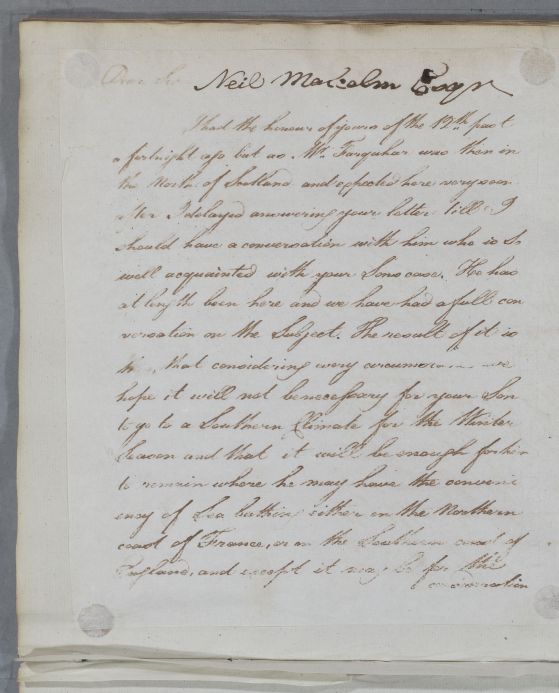 Dear Sir
Neil Malcolm Esqr
I had the honour of yours of the 12th past
a fortnight ago but as Mr. Farquhar was then in
the North of Scotland and expected here very soon
after I delayed answering your letter till I
should have a conversation with him who is so
well acquainted with your Sons case. He has
at length been here and we have had a full con
versation on the Subject. The result of it is
this, that considering every circumstance we
hope it will not be necessary for your Son
to go to a Southern Climate for the Winter
Season and that it will be enough for him
to remain where he may have the conveni
ency of Sea bathing either on the Northern
coast of France, or on the Southern coast of
England, and except it may be for the
consideration